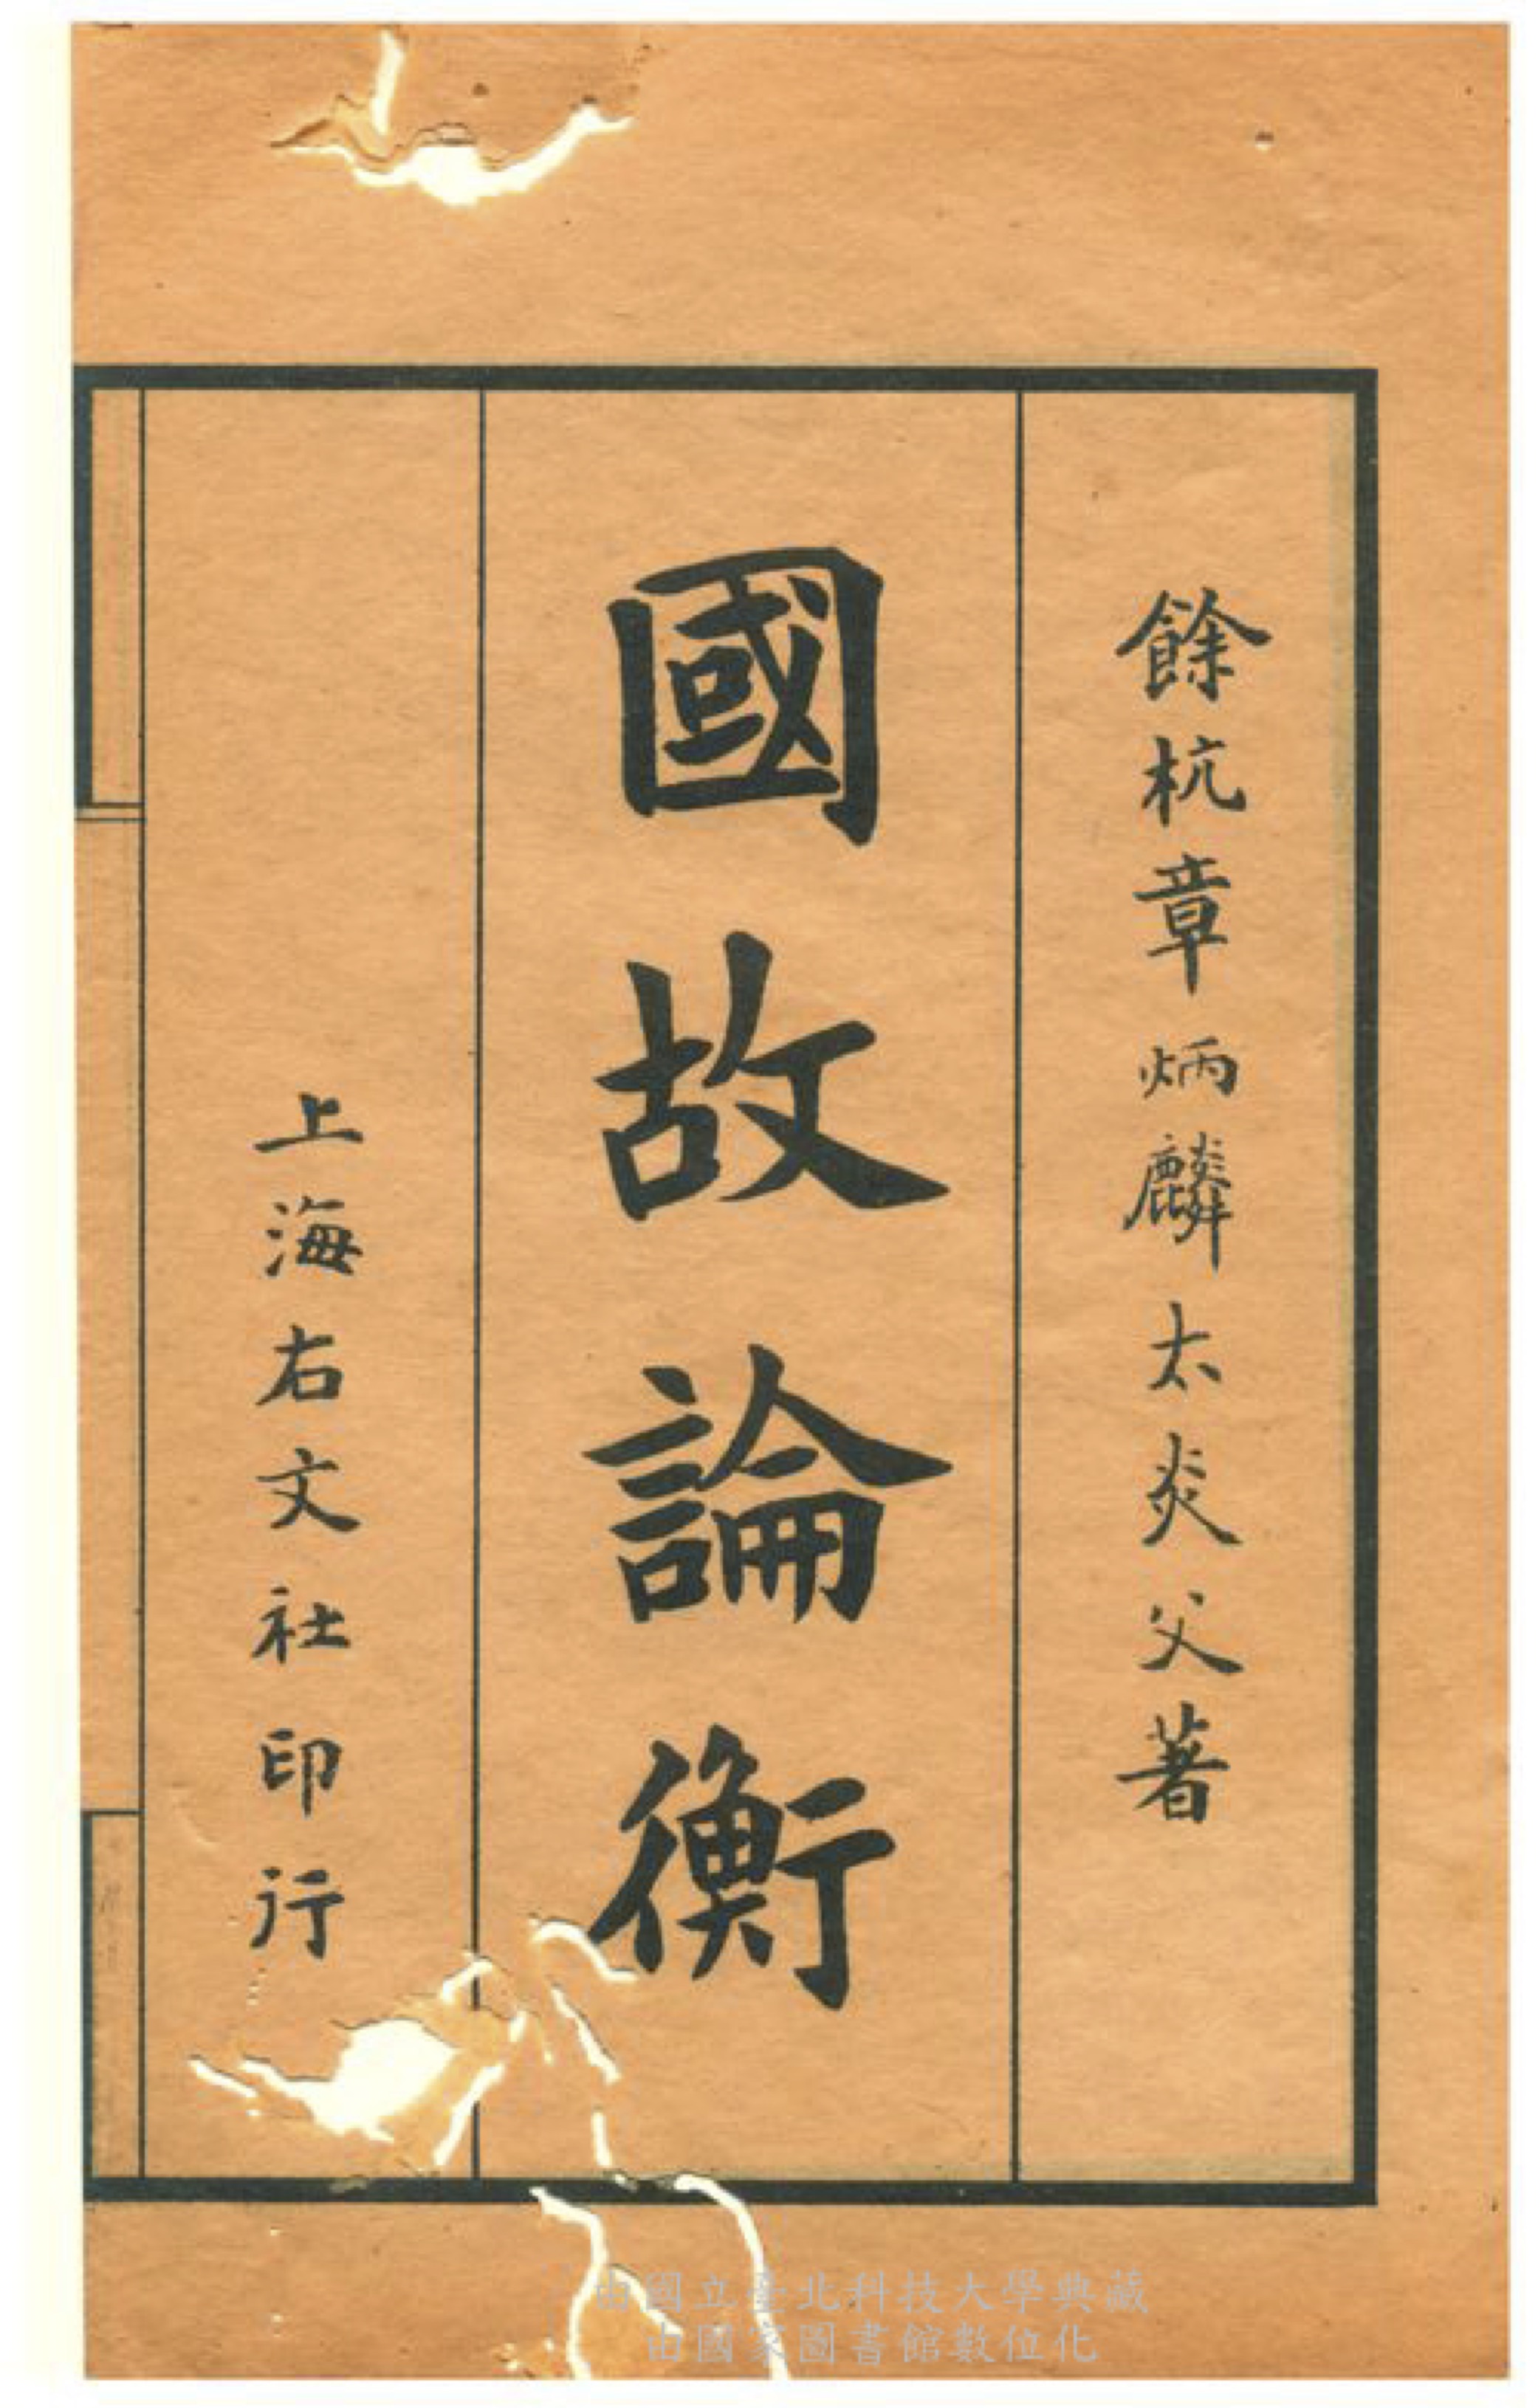 餘杭章炳麟太炎父著
國故論衡
上海右文社印行
由國立臺北科技大學典藏
由國家圖書館數位化